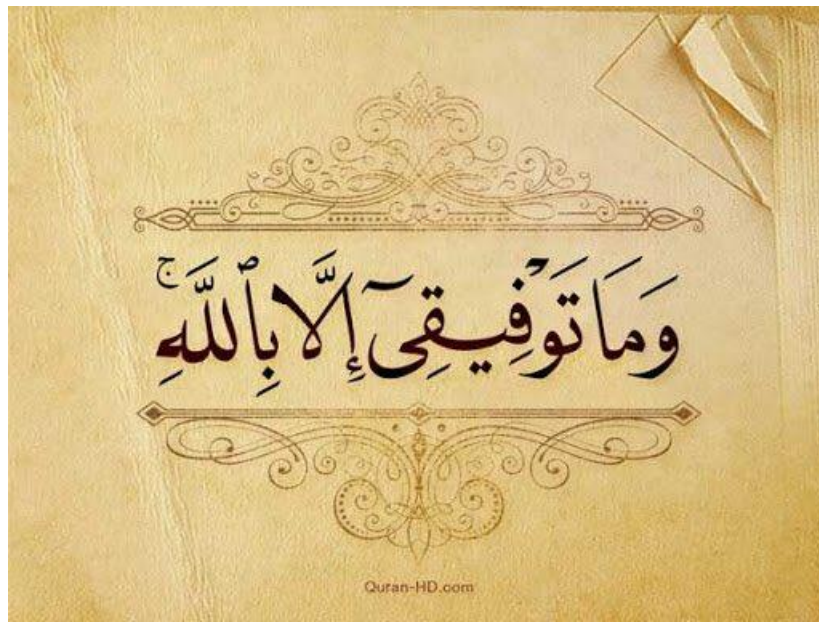 وَمَا تَوْفِيقِىٓ إِلَّا بِٱللَّهِ ۚ
Quran-HD.com